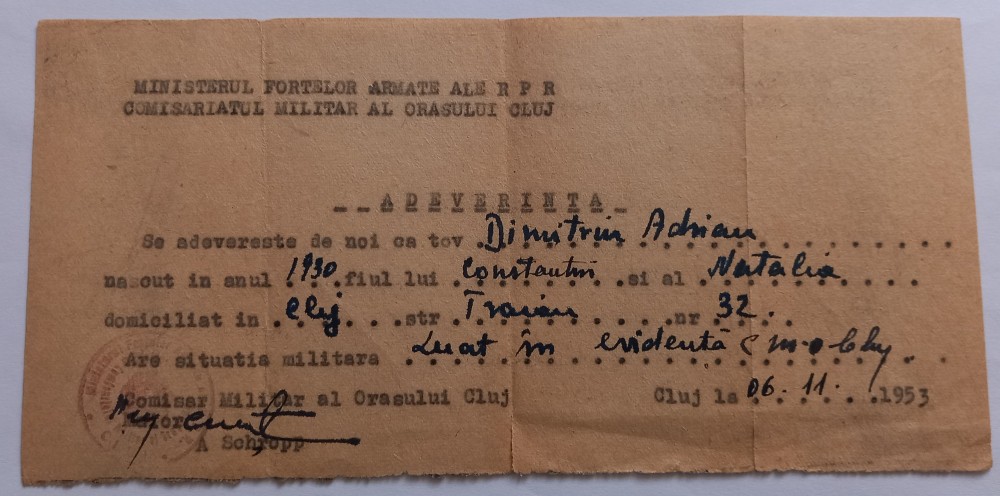 MINISTERUL FORTELOR ARMATE ALE R P R
COMISARIATUL MILITAR AL ORASULUI CLUJ
_ _ A D E V E R I N T A _
Se adevereste de noi ca tov Dimitriu Adrian
nascut in anul 1930 fiul lui Constantin si al Natalia
domiciliat in Cluj str Traian nr 32.
Are situatia militara Luat în evidentă
Comisar Militar al Orasului Cluj Cluj la 06.11.1953
Maior
A Schropp